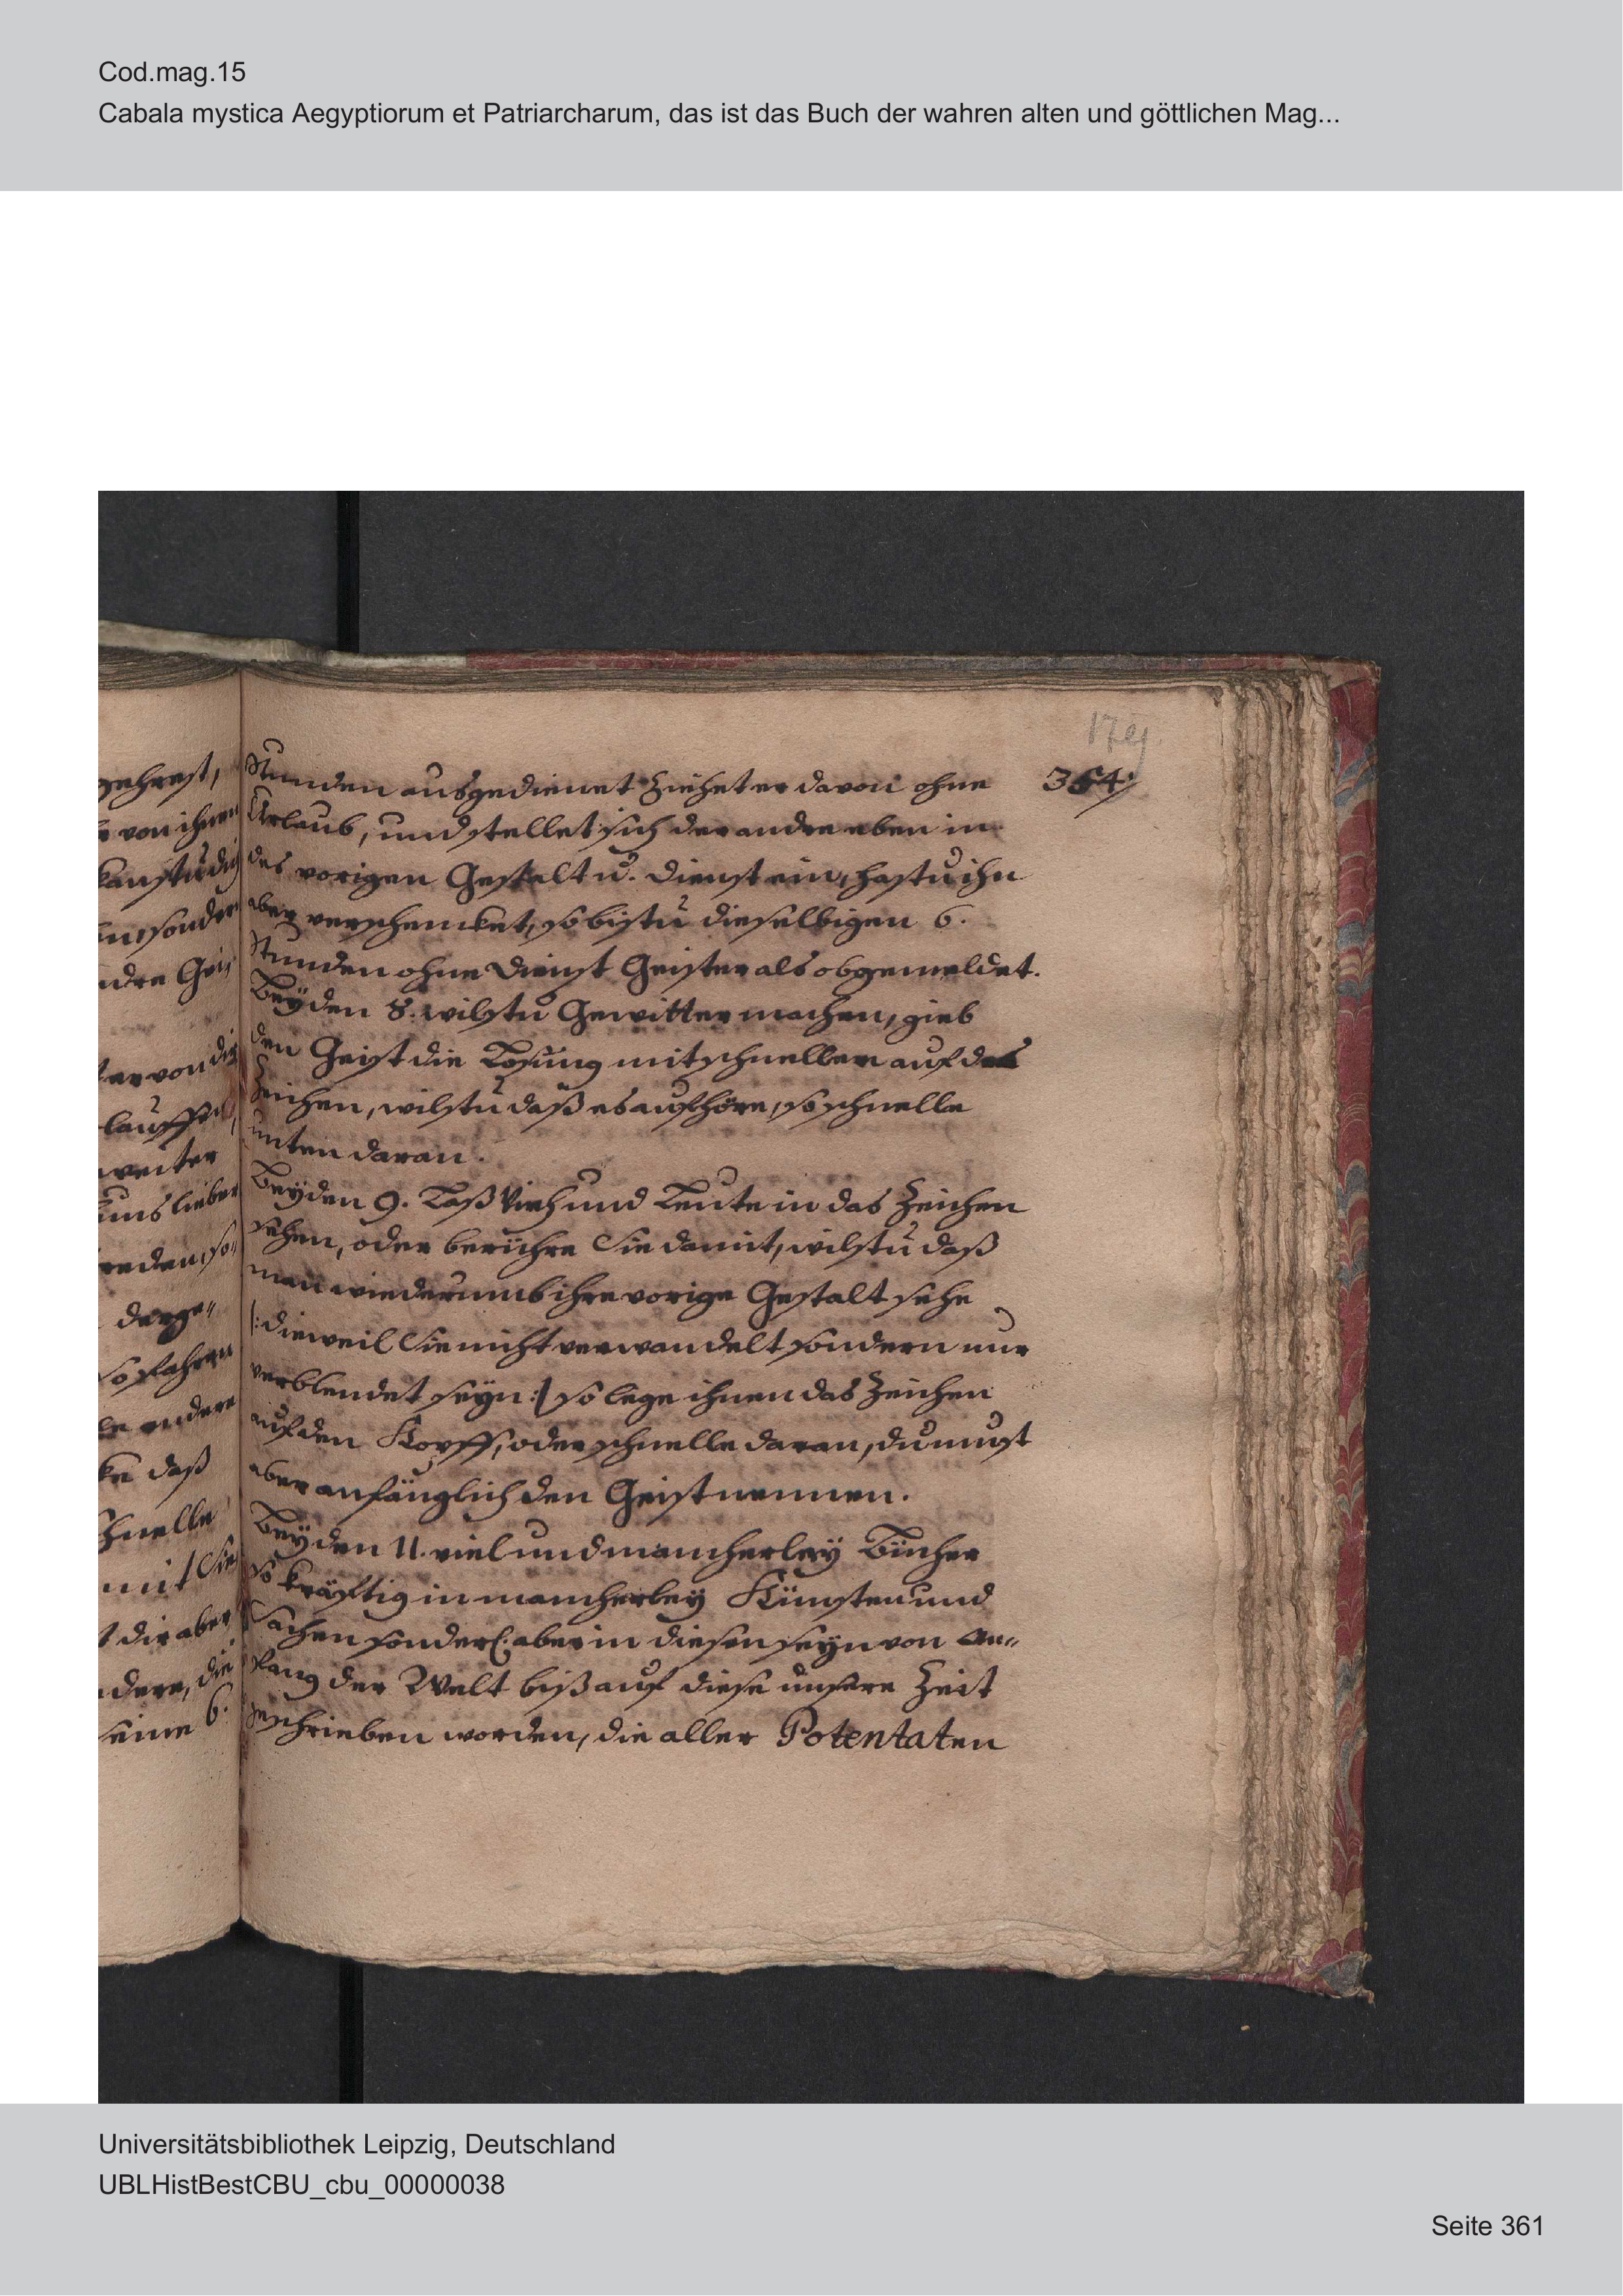 Cod.mag.15
Cabala mystica Aegyptiorum et Patriarcharum, das ist das Buch der wahren alten und göttlichen Mag...
gehrest,
von ihnen
kanstu die
sondern
ndre Gei,,
ter von dir
lauffen,
weiter
uns lieber
reden, so,,
derge,,
so fahren
andere
daß
schnelle
mit Sie
dir aber
ndere, die
seine 6.
179
354.
Stunden ausgedienet Ziehet er davon ohne
Urlaub, und stellet sich der andre eben in
des vorigen Gestalt u. dienst ein, hastu ihn
aber verschencket, so bistu dieselbigen 6.
Stunden ohne dienst Geister als obgemeldet.
Bey den 8. wilstu Gewitter machen, gieb
den Geist die Losung mit schnellen auf das
Zeichen, wilstu daß es aufhöre, so schnelle
unten daran.
Bey den 9. Laß Vieh und Leute in das Zeichen
sehen, oder berühre Sie damit, wilstu daß
man wiederumb ihre vorige Gestalt sehe
/: dieweil Sie nicht verwandelt sondern nur
verblendet seyn :/ so lege ihnen das Zeichen
auf den Kopff, oder schnelle daran, du must
aber anfänglich den Geist nennen.
Bey den 11. viel und mancherley Bücher
so kräfftig in mancherley Künsten und
Sachen sonderl. aber in diesen seyn von An,,
fang der Welt biß auf diese unsere Zeit
geschrieben worden, die aller Potentaten
Universitätsbibliothek Leipzig, Deutschland
UBLHistBestCBU_cbu_00000038
Seite 361